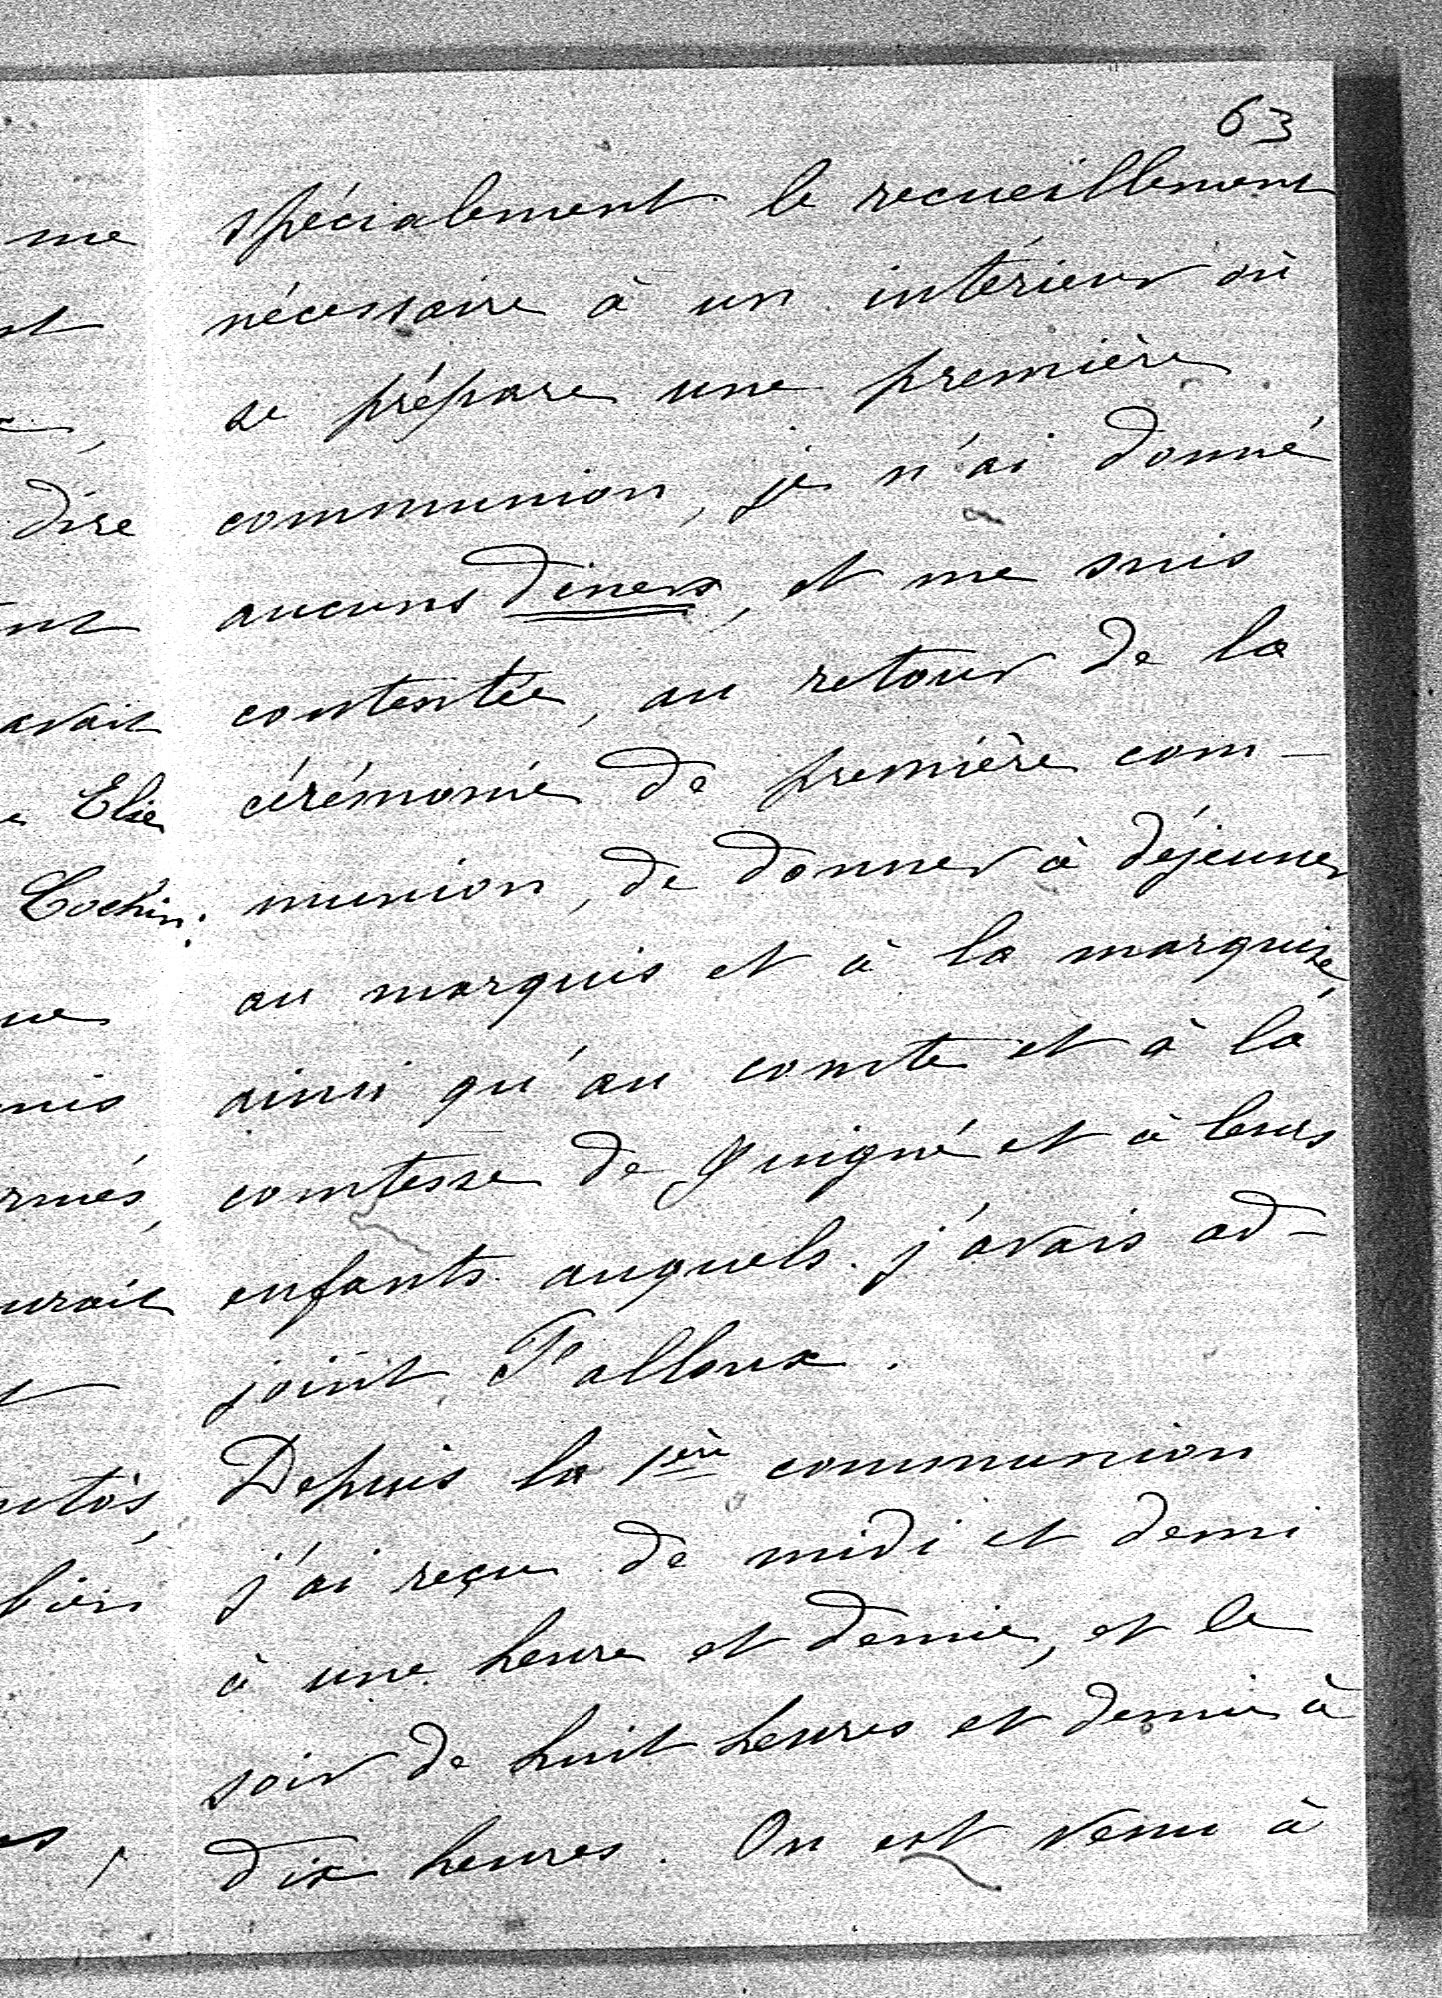 63
spécialement le recueillement
nécessaire à un intérieur où
se prépare une première
communion, je n'ai donné
aucuns diners, et me suis
contentée, au retour de la
cérémonie de première com-
munion, de donner à déjeuner
au marquis et à la marquise,
ainsi qu'au comte et à la
comtesse de Juigné et à leurs
enfants auquels j'avais ad-
joint Falloux.
Depuis la 1ère communion
j'ai reçu de midi et demi
à une heure et demie, et le
soir de huit heures et demie à
dix heures. On est venu à
me
dire
avait
Elie
Cochin.